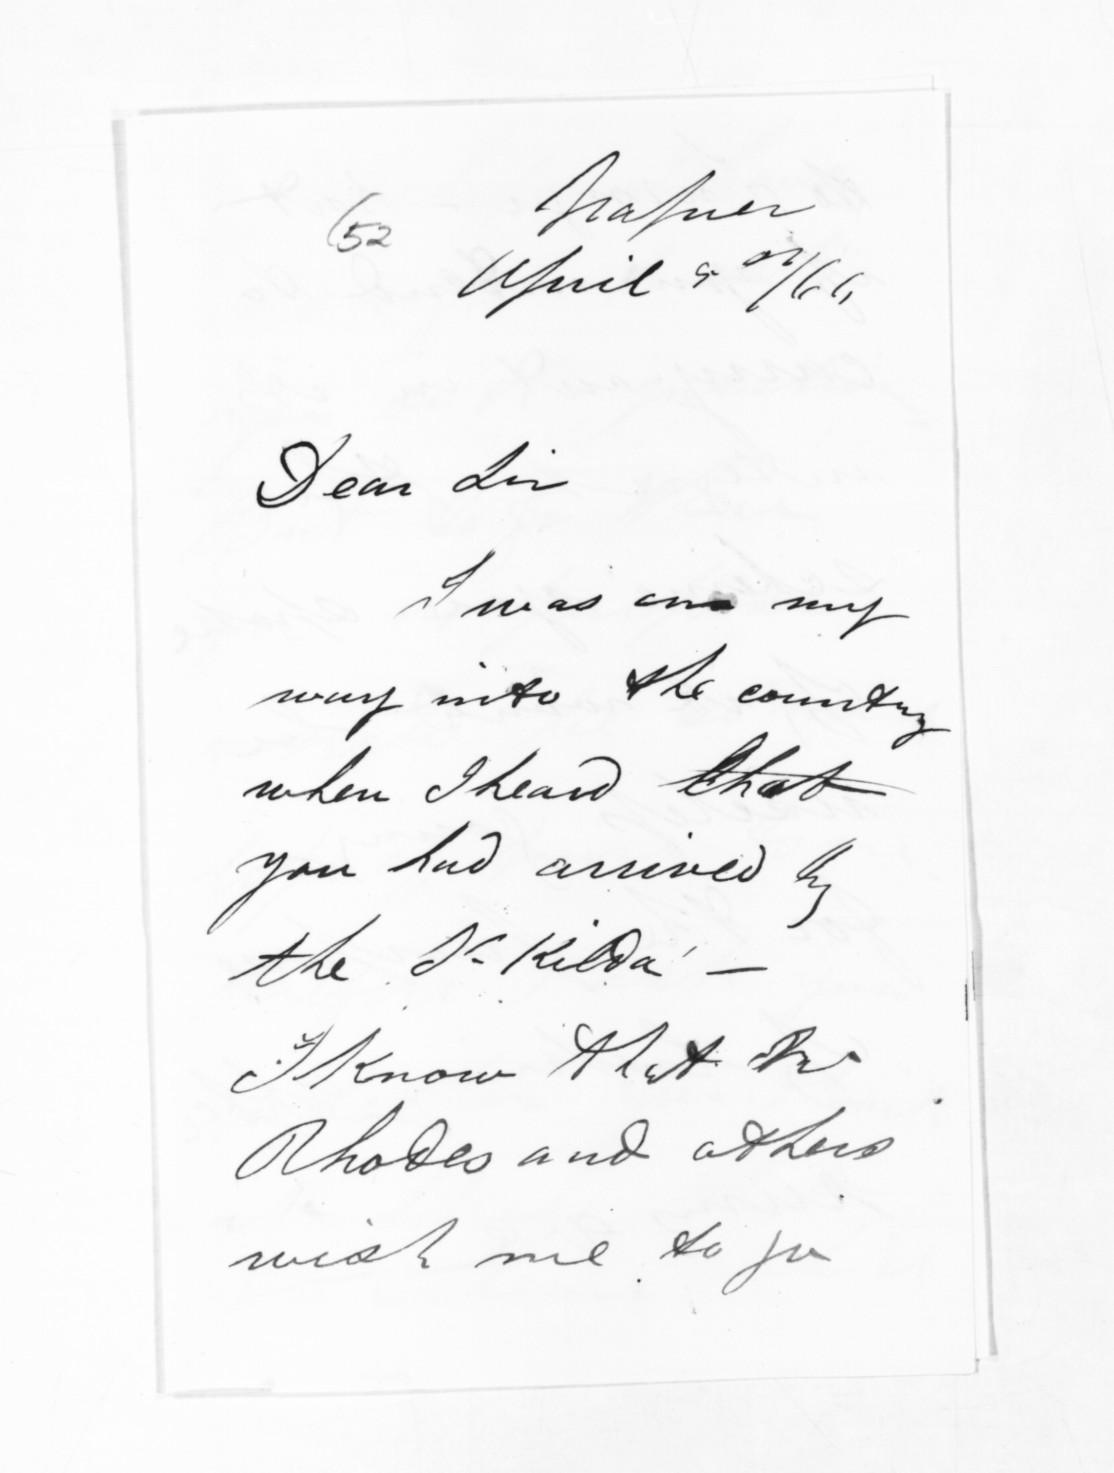 (52
Napier
April 5th/66
Dear Sir
I was on my
way into the country
when I heard that
you had arrived by
the St Kilda' —
I know that Mr
Rhodes and others
wish me to go